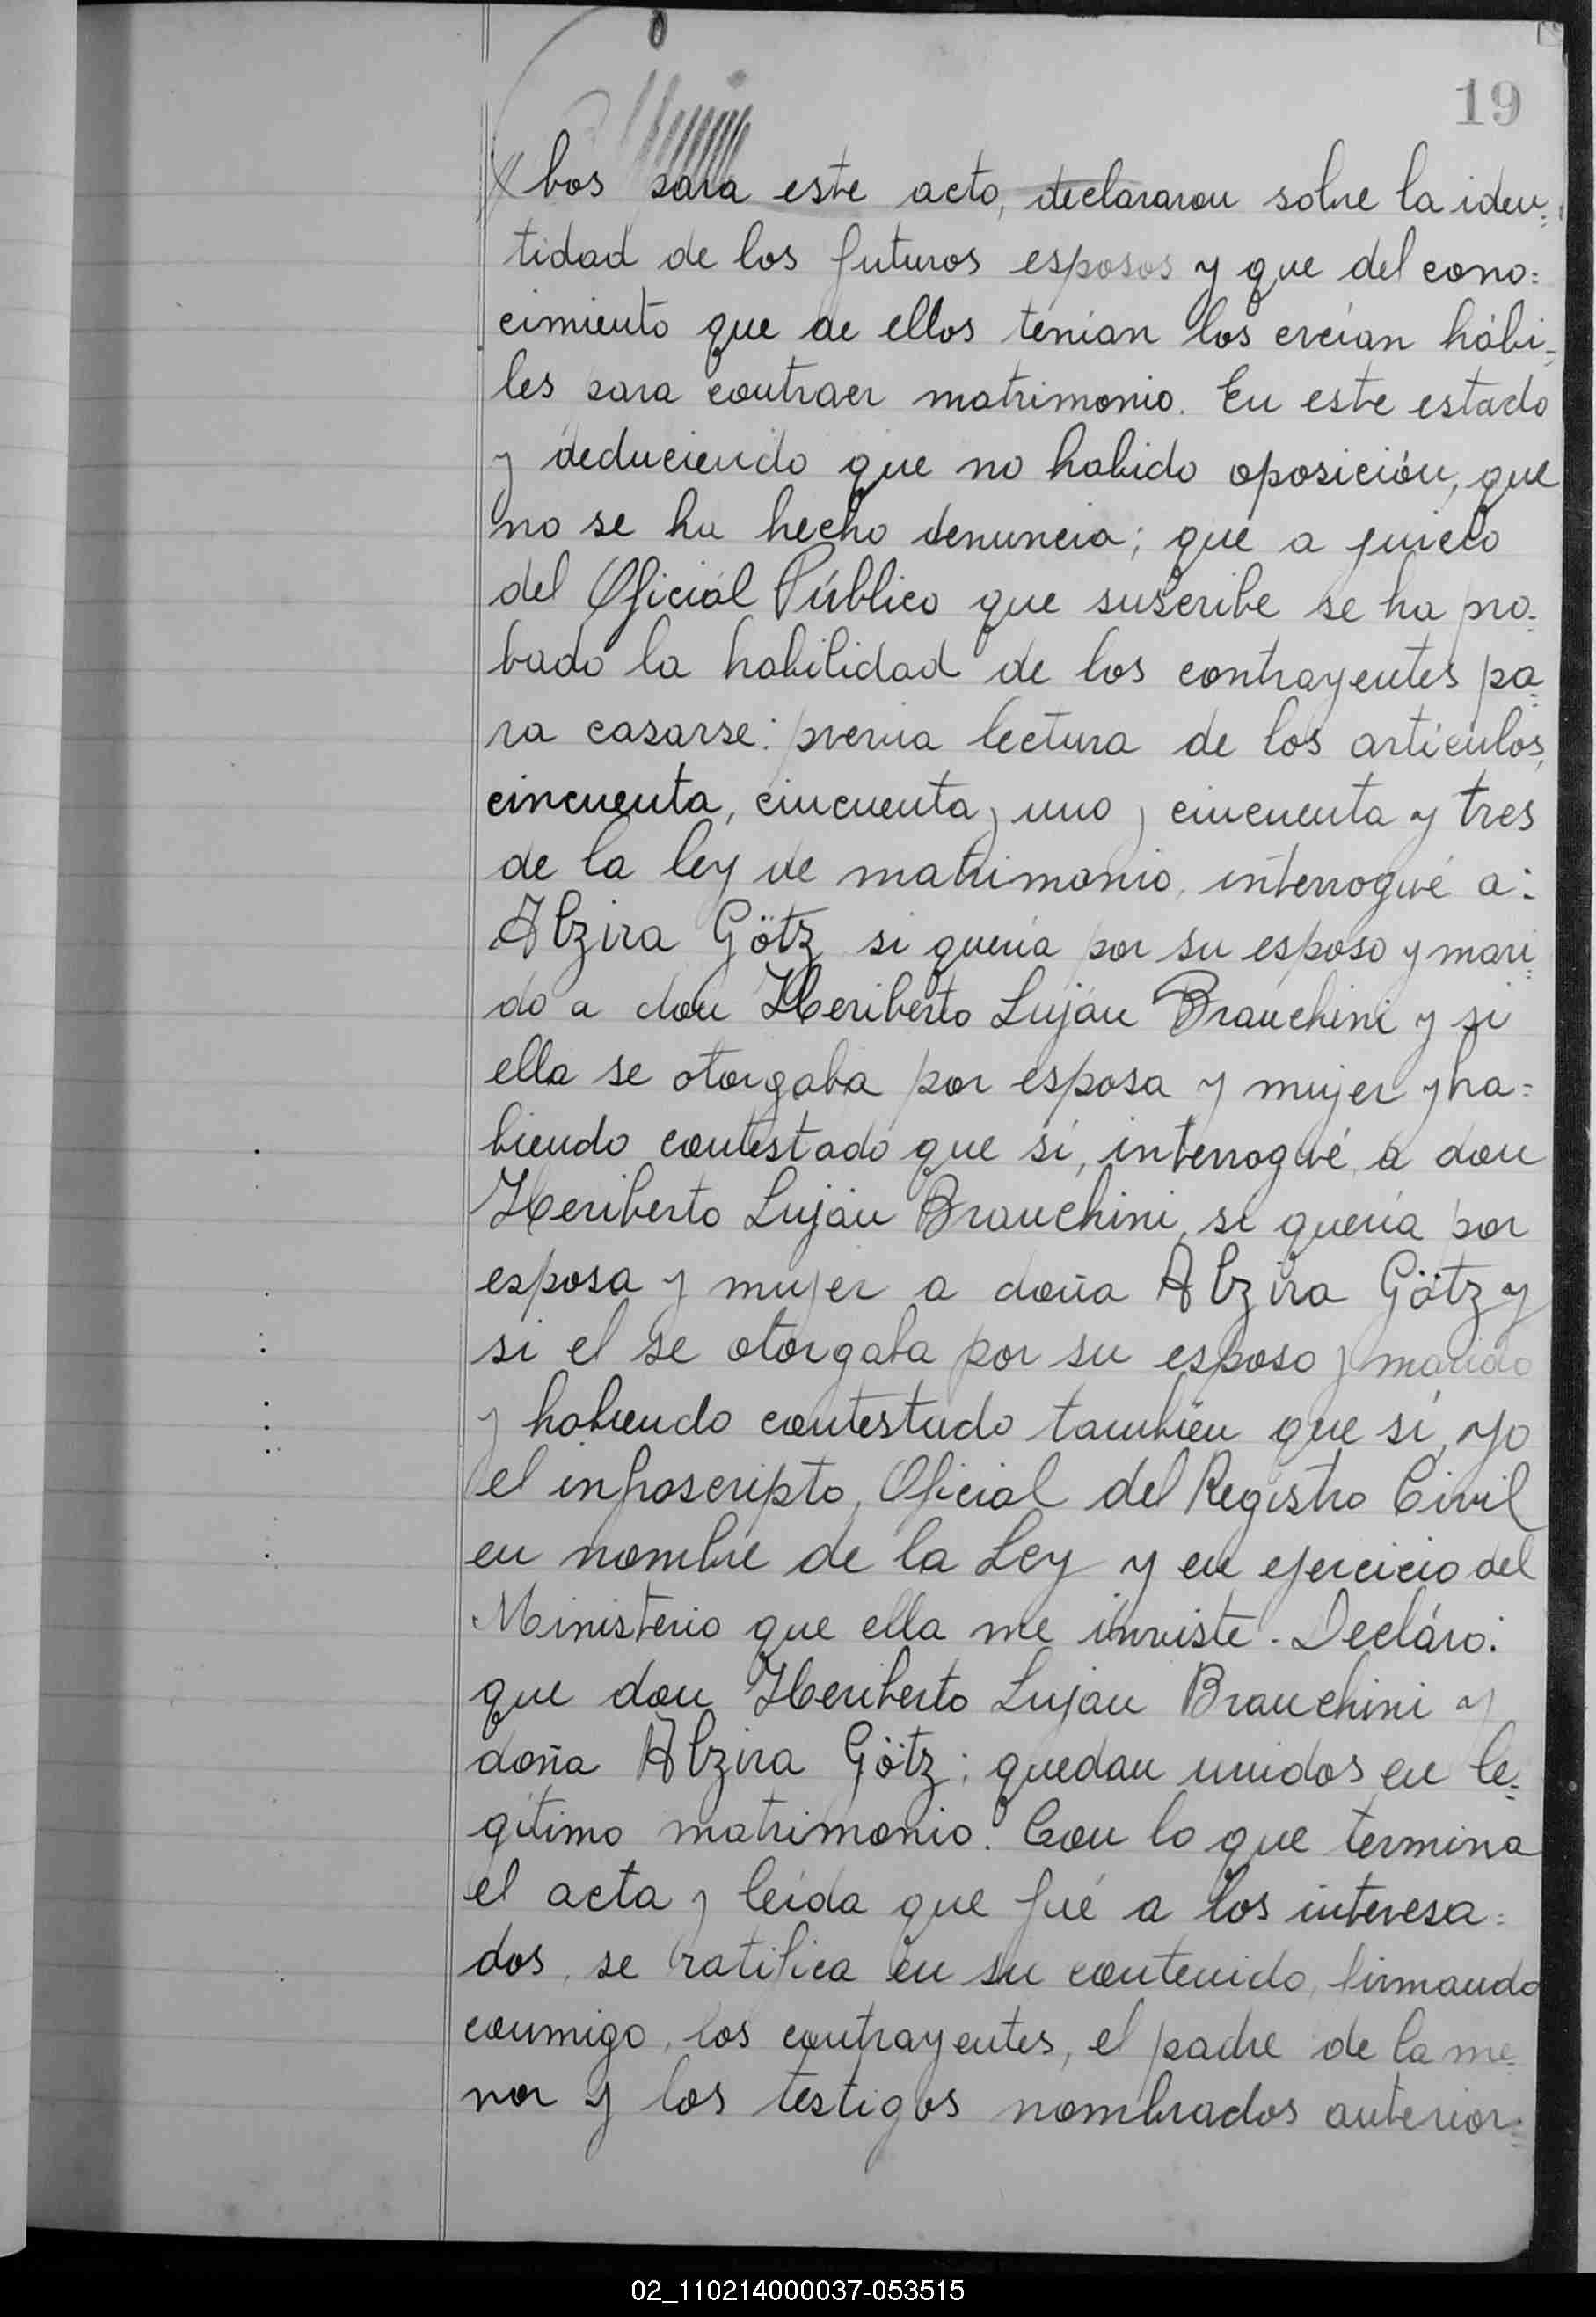 19
bos para este acto, declararon sobre la iden=
tidad de los futuros esposos y que del cono=
cimiento que de ellos tenían los creían hábi=
les para contraer matrimonio. En este estado
y deduciendo que no habido oposición, que
no se ha hecho denuncia; que a juicio
del Oficial Público que suscribe se ha pro=
bado la habilidad de los contrayentes pa=
ra casarse: previa lectura de los artículos,
cincuenta, cincuenta y uno y cincuenta y tres
de la ley de matrimonio, interrogué a:
Alzira Götz si quería por su esposo y mari=
do a don Heriberto Luján Branchini y si
ella se otorgaba por esposa y mujer y ha=
biendo contestado que sí, interrogué a don
Heriberto Luján Branchini, si quería por
esposa y mujer a doña Alzira Götz y
si el se otorgaba por su esposo y marido
y habiendo contestado también que sí, yo
el infrascripto, Oficial del Registro Civil
en nombre de la Ley y en ejercicio del
Ministerio que ella me inviste. Decláro:
que don Heriberto Lujan Branchini y
doña Alzira Götz; quedan unidos en le=
gítimo matrimonio. Con lo que termina
el acta y leída que fué a los interesa=
dos, se ratifica en su contenido, firmando
conmigo, los contrayentes, el padre de la me=
nor y los testigos nombrados anterior=
02_110214000037-053515